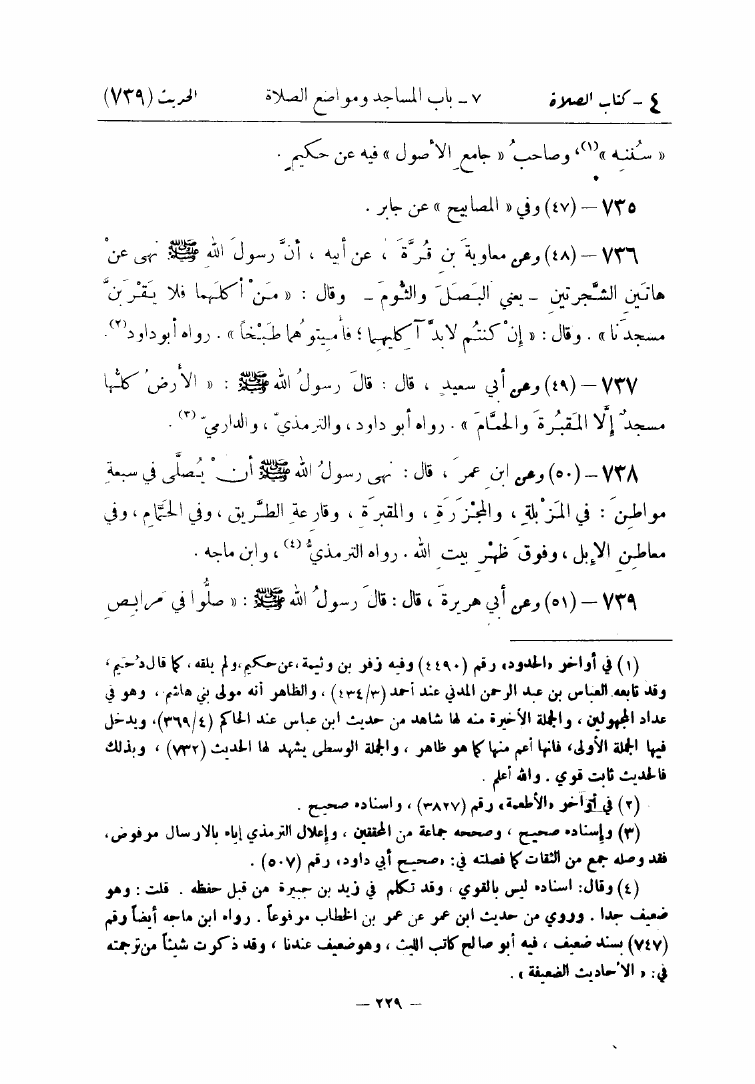 ٤ ـ كتاب الصلاة ٧ ـ باب المساجد ومواضع الصلاة الحديث (٧٣٩)
« سُننِه »(١)، وصاحبُ « جامع الأصول » فيه عن حكيمٍ .
٧٣٥ – (٤٧) وفي « المصابيح » عن جابر .
٧٣٦ – (٤٨) وعن معاويةَ بنِ قُرَّةَ ، عن أبيه ، أنَّ رسولَ الله ﷺ نهى عنْ
هاتَينِ الشَّجرتينِ ـ يعني البَصلَ والثُّومَ ـ وقال : « مَنْ أكلَهما فلا يَقْرَبنَّ
مسجدَنا » . وقال : « إنْ كنتُم لابدَّ آكليهِما ؛ فأميتوهُما طَبْخاً » . رواه أبوداود(٢).
٧٣٧ – (٤٩) وعن أبي سعيدٍ ، قال : قالَ رسولُ اللهﷺ : « الأرضُ كلُّها
مسجدٌ إلَّا المَقبُرةَ والحمَّامَ » . رواه أبو داود ، والترمذيّ ، والدارميّ(٣) .
٧٣٨ – (٥٠) وعن ابنِ عمرَ ، قال : نهى رسولُ اللهﷺ أنْ يُصلَّى في سبعةِ
مواطِنَ : في المَزْبلةِ ، والمجْزَرَةِ ، والمقبرَةِ ، وقارعةِ الطَّريقِ ، وفي الحَمَّامِ ، وفي
معاطِنِ الإبِلِ ، وفوقَ ظهْرِ بيتِ الله . رواه الترمذيُّ(٤) ، وابن ماجه .
٧٣٩ – (٥١) وعن أبي هريرةَ ، قال : قالَ رسولُ اللهﷺ : « صلُّوا في مَرابِضِ
(١) في أواخر «الحدود» رقم (٤٤٩٠) وفيه زفر بن وثيمة،عن حكيم،ولم يلقه ، كما قال دُحيم ،
وقد تابعه العباس بن عبد الرحمن المدني عند أحمد (٤٣٤/٣) ، والظاهر أنه مولى بني هاشم ، وهو في
عداد المجهولين ، والجملة الأخيرة منه لها شاهد من حديث ابن عباس عند الحاكم (٣٦٩/٤)، ويدخل
فيها الجملة الأولى، فانها أعم منها كما هو ظاهر ، والجملة الوسطى يشهد لها الحديث (٧٣٢) ، وبذلك
فالحديث ثابت قوي . والله أعلم .
(٢) في أواخر «الأطعمة» رقم (٣٨٢٧) ، واسناده صحيح .
(٣) وإسناده صحيح ، وصححه جماعة من المحققين ، وإعلال الترمذي إياه بالارسال مرفوض،
فقد وصله جمع من الثقات كما فصلته في: «صحيح أبي داود» رقم (٥٠٧) .
(٤) وقال: اسناده ليس بالقوي ، وقد تكلم في زيد بن جبيرة من قبل حفظه . قلت : وهو
ضعيف جدا . وروي من حديث ابن عمر عن عمر بن الخطاب مرفوعاً . رواه ابن ماجه أيضاً رقم
(٧٤٧) بسند ضعيف ، فيه أبو صالح كاتب الليث ، وهوضعيف عندنا ، وقد ذكرت شيئاً من ترجمته
في: « الأحاديث الضعيفة » .
– ٢٢٩ –